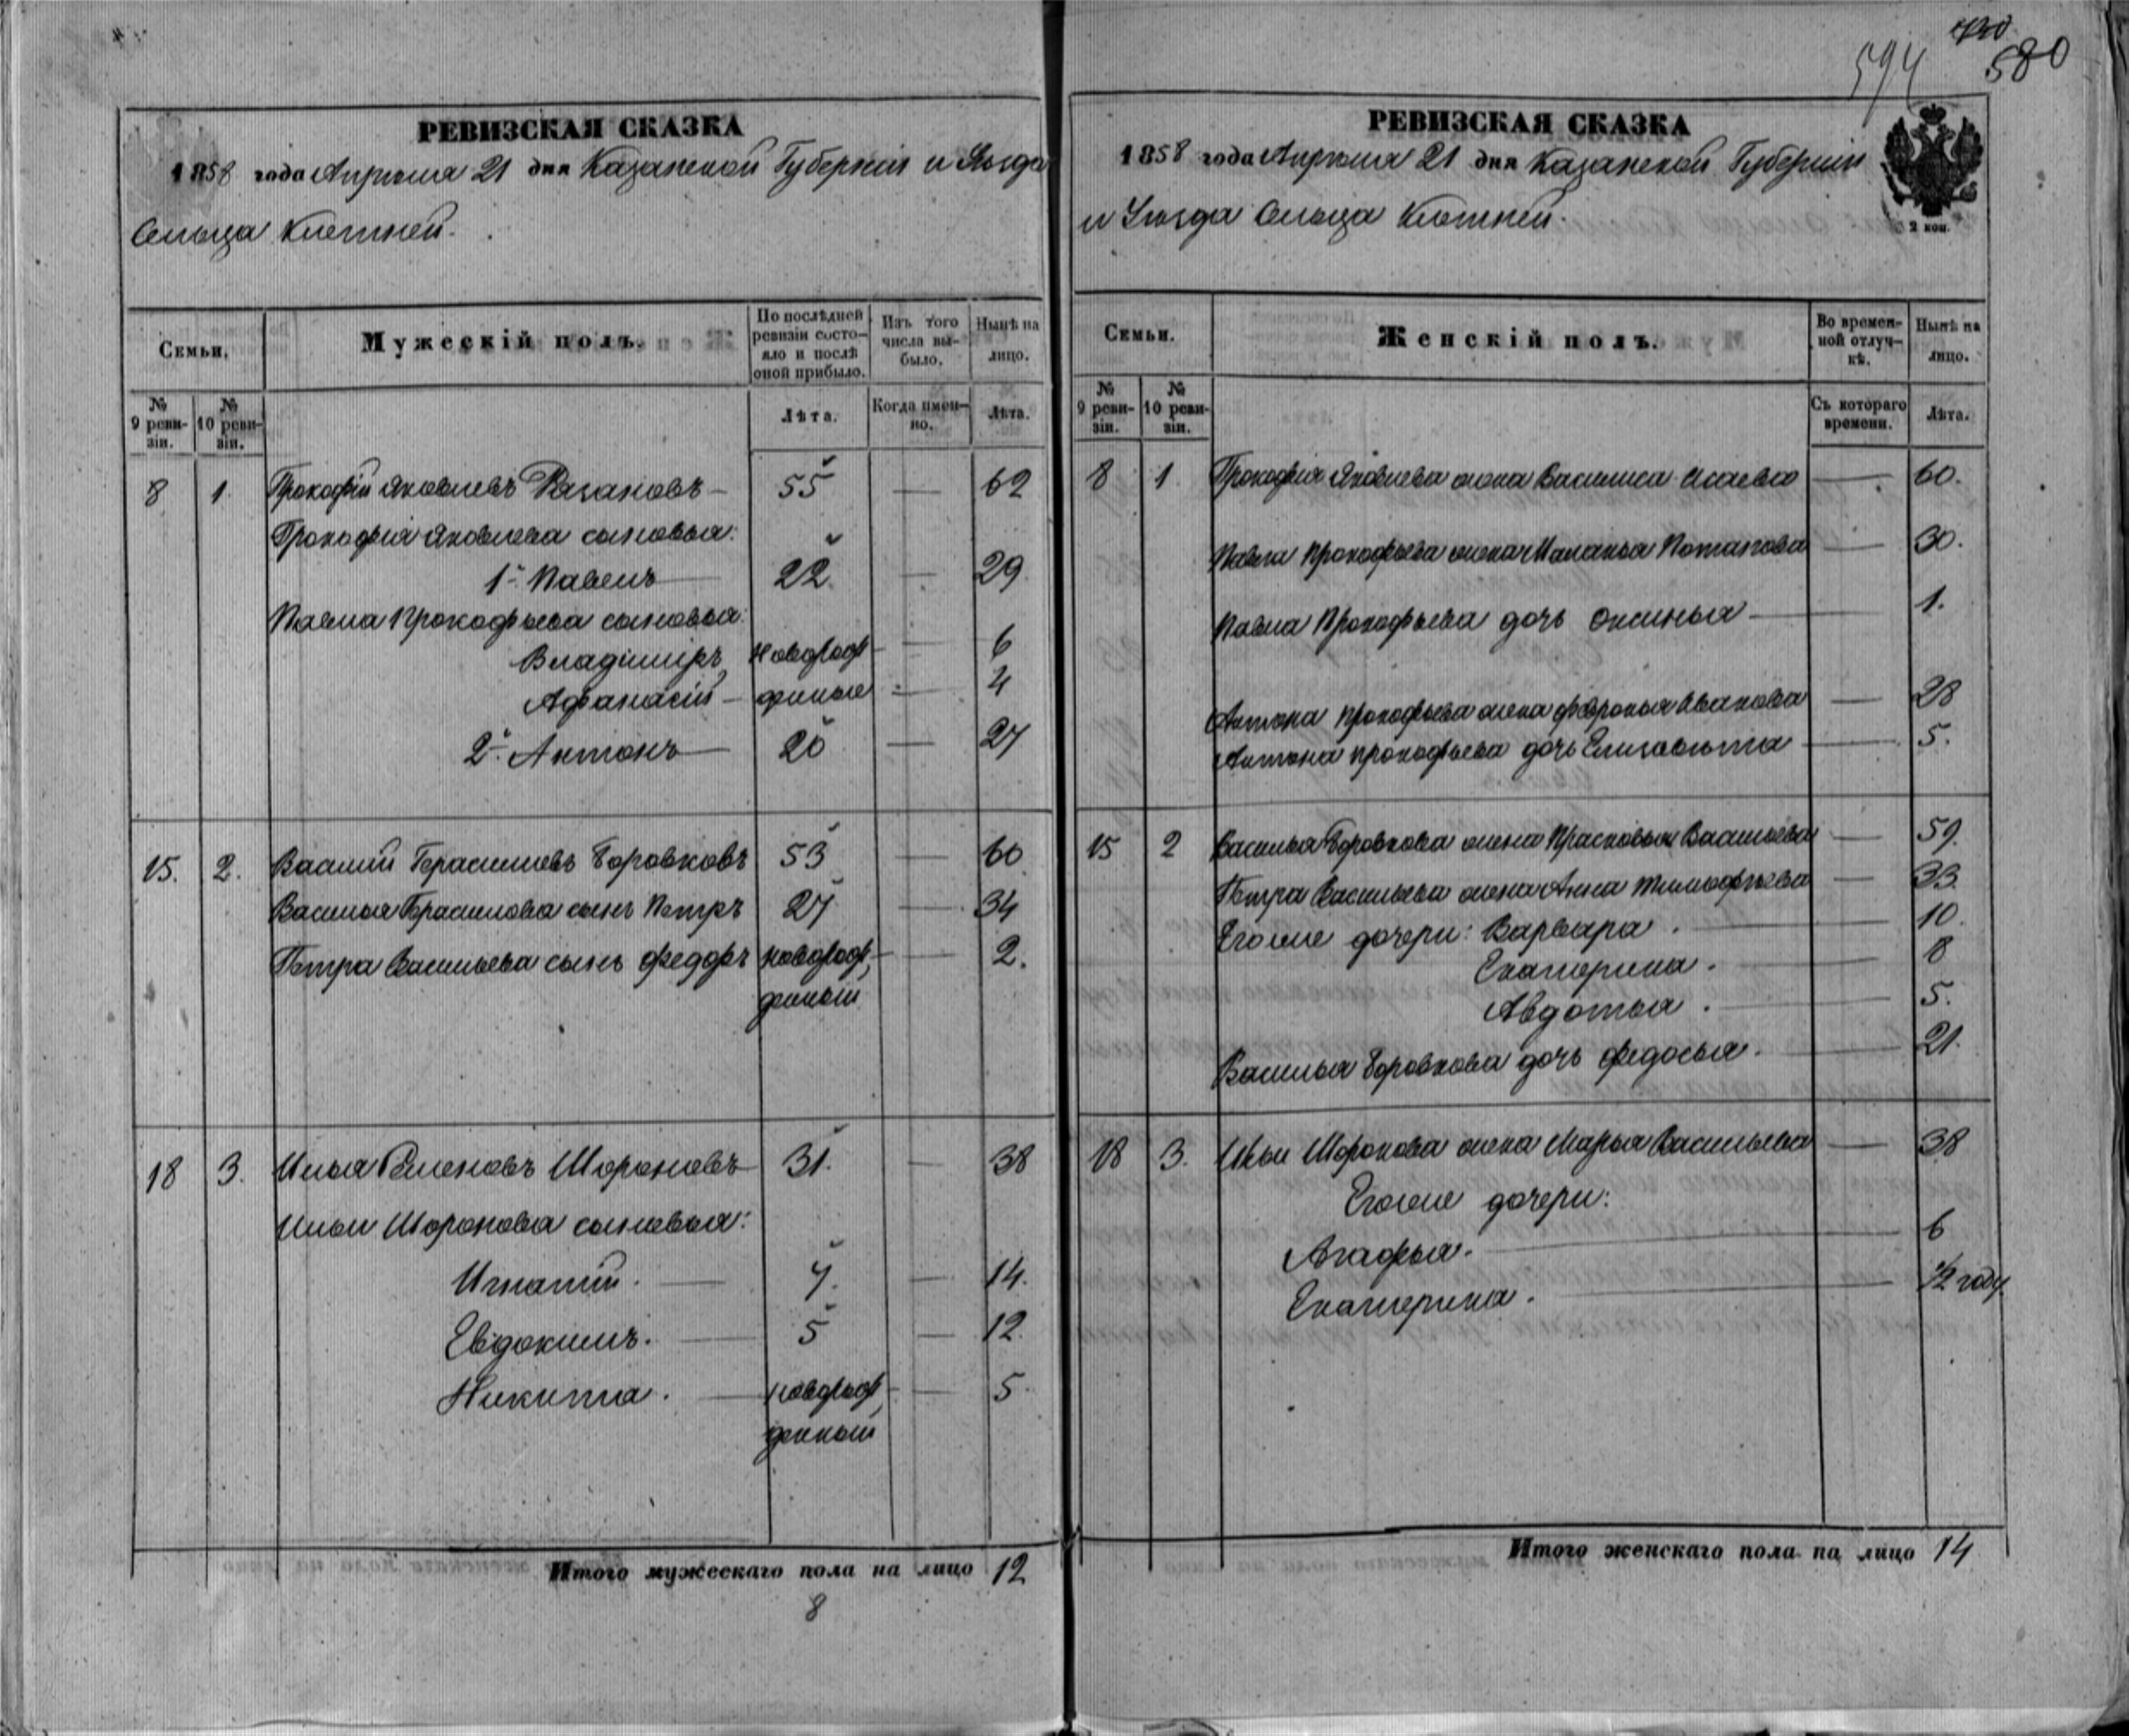 720
594 580
РЕВИЗСКАЯ СКАЗКА
1858 года Апрѣля 21 дня Казанской Губерніи и Уѣзда
Сельца Клетней.
Семьи.
Мужескій полъ.
По послѣдней ревизіи состояло и послѣ оной прибыло.
Изъ того числа выбыло.
Нынѣ на лицо.
№ 9 ревизіи.
№ 10 ревизіи.
Лѣта.
Когда именно.
Лѣта.
8 1. Прокофій Яковлевъ Разановъ — 55 — 62
Прокофья Яковлева сыновья:
1й Павелъ — 22 — 29
Павла Прокофьева сыновья:
Владиміръ новорож — 6
Афанасій — денные — 4
2й Антонъ — 20 — 27
15. 2. Василій Герасимовъ Боровковъ 53 — 60
Василья Герасимова сынъ Петръ 27 — 34
Петра Васильева сынъ Федоръ новорож — 2.
денный
18 3. Илья Семеновъ Шороновъ 31. — 38
Ильи Шоронова сыновья:
Игнатій. — 7. — 14.
Евдокимъ. — 5 — 12.
Никита. — новорож — 5
денный
Итого мужескаго пола на лицо 12
8
РЕВИЗСКАЯ СКАЗКА
1858 года Апрѣля 21 дня Казанской Губерніи
и Уѣзда Сельца Клетней.
2 коп.
Семьи.
Женскій полъ.
Во временной отлучкѣ.
Нынѣ на лицо.
№ 9 ревизіи.
№ 10 ревизіи.
Съ котораго времени.
Лѣта.
8 1 Прокофья Яковлева жена Василиса Исаева — 60.
Павла Прокофьева жена Маланья Потапова — 30.
Павла Прокофьева дочь Оксинья — 1.
Антона Прокофьева жена Февронья Иванова — 28
Антона Прокофьева дочь Елизавѣта — 5.
15 2 Василья Боровкова жена Прасковья Васильева — 59.
Петра Васильева жена Анна Тимофѣева — 33.
Его же дочери: Варвара. — 10.
Екатерина. — 8
Авдотья. — 5.
Василья Боровкова дочь Федосья. — 21.
18 3. Ильи Шоронова жена Марья Васильева — 38
Его же дочери:
Агафья. — 6
Екатерина. — 1/2 году.
Итого женскаго пола на лицо 14